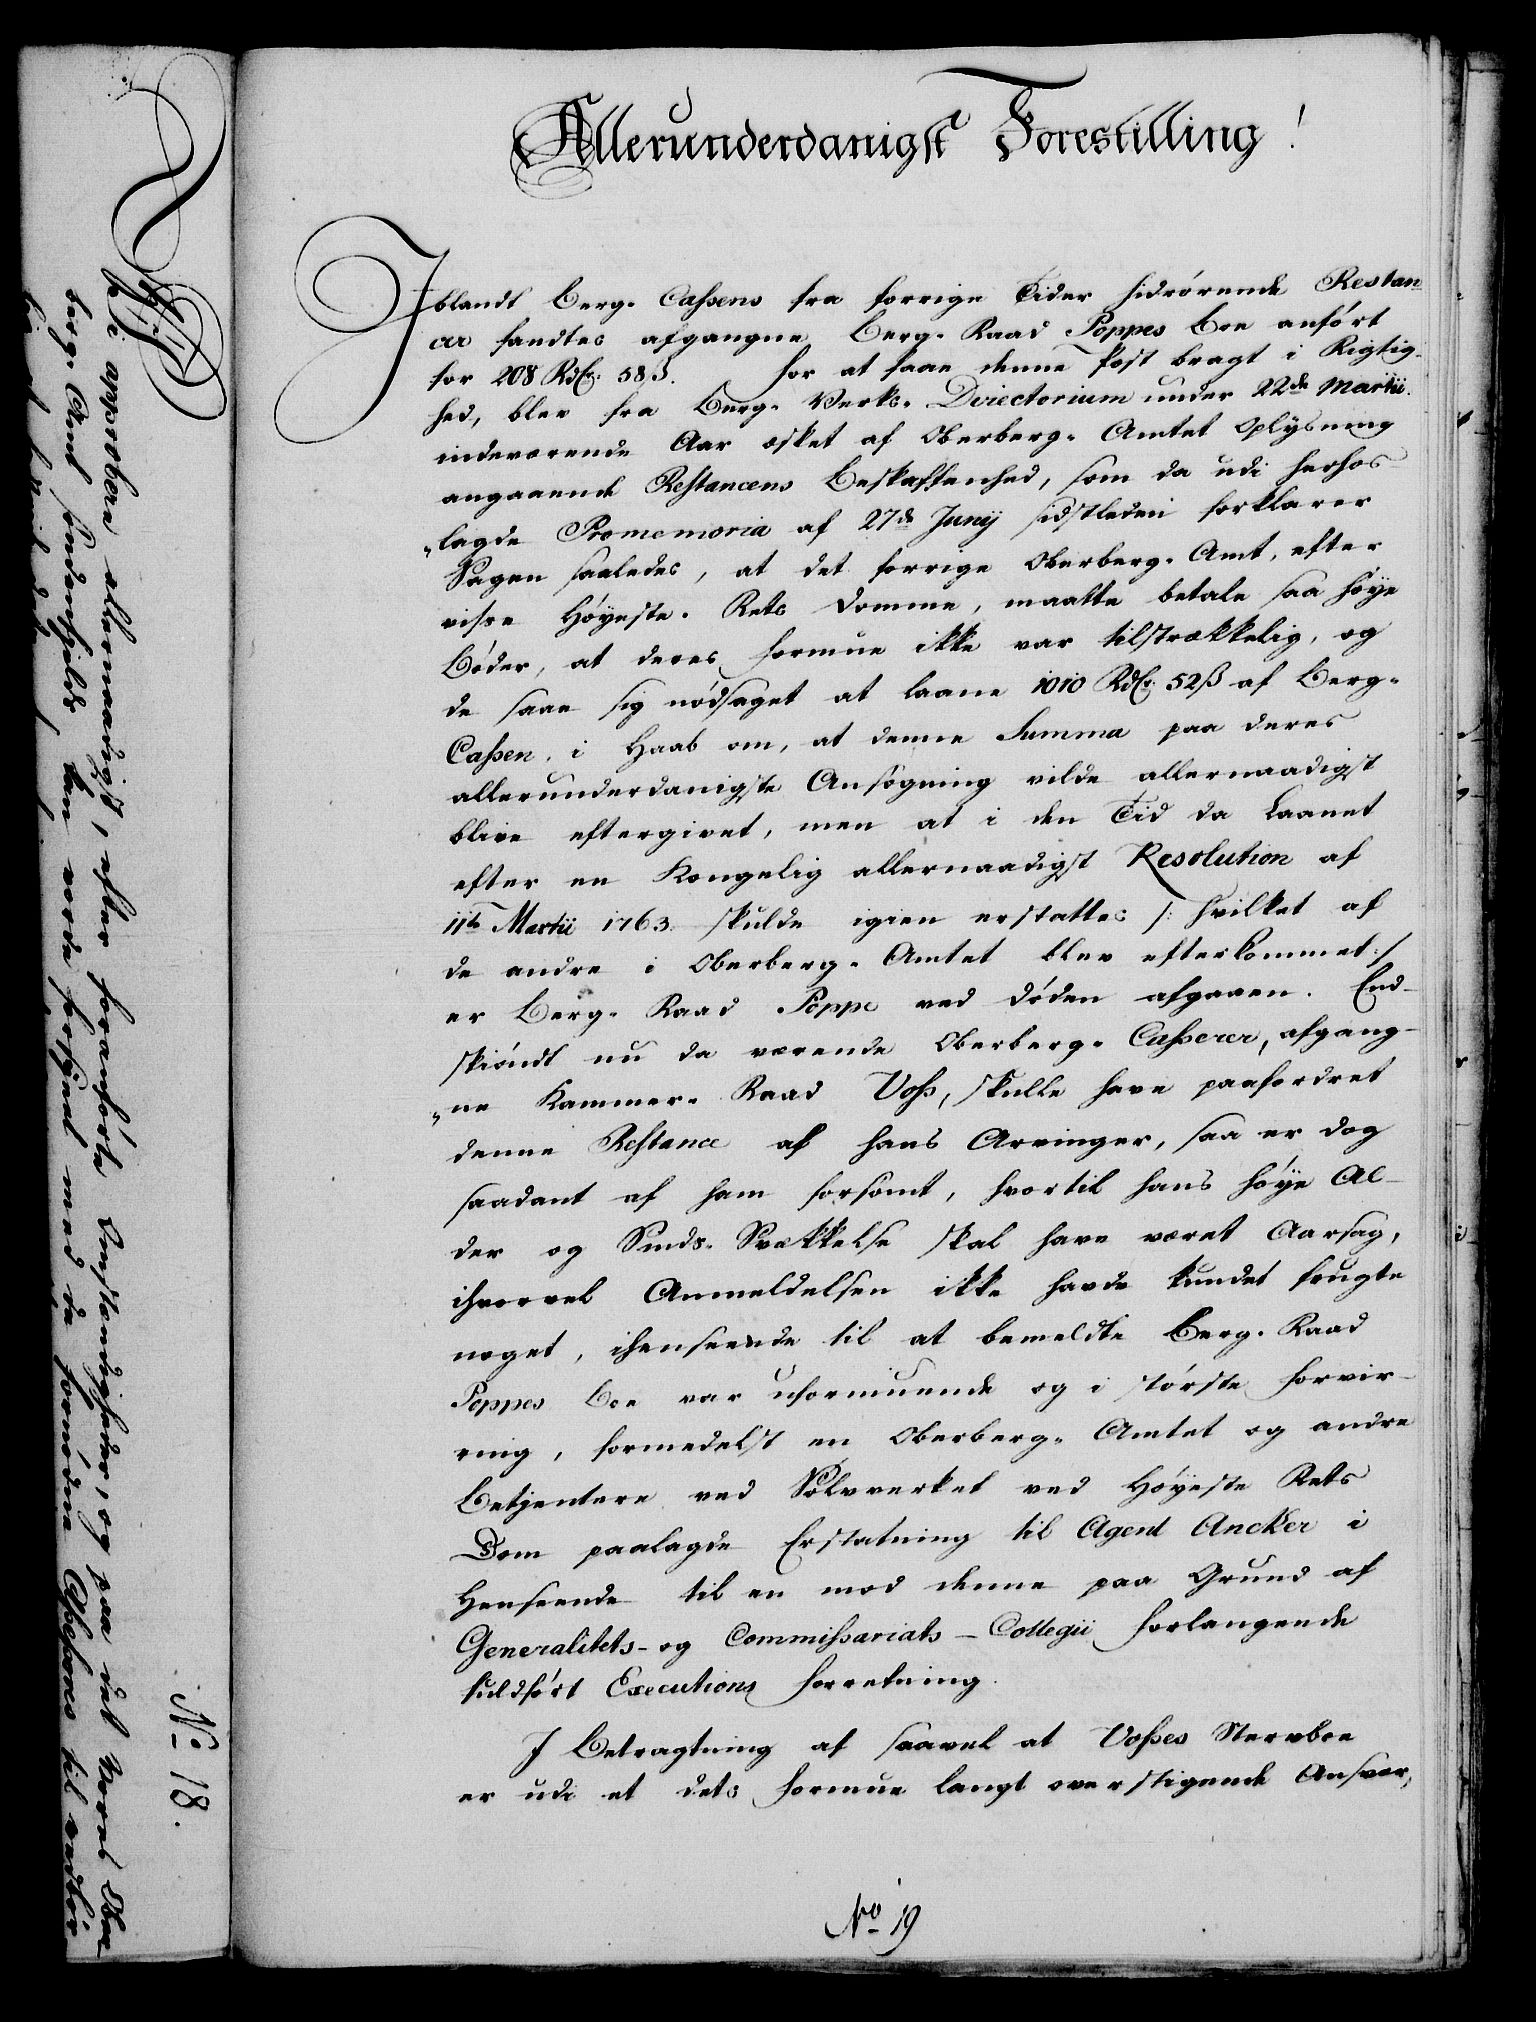 Allerunderdanigst Forestilling!
Iblandt Berg-Cassens fra forrige Tider hidrørende Restan-
cer fandtes afgangne Berg-Raad Poppes Boe anført
for 208 Rdlr. 58 ß. For at faae denne Post bragt i Rigtig-
hed, blev fra Berg-Verks-Directorium under 22de Martii
indeværende Aar æsket af Oberberg-Amtet Oplysning
angaaende Restancens Beskaffenhed, som da udi herhos-
„lagde Promemoria af 27de Junij sidstleden forklarer
Sagen saaledes, at det forrige Oberberg-Amt, efter
visse Høyeste-Rets Domme, maatte betale saa høye
Bøder, at deres Formue ikke var tilstrækkelig, og
de saae sig nødsaget at laane 1010 Rdlr. 52 ß af Berg-
Cassen, i Haab om, at denne Summa paa deres
allerunderdanigste Ansøgning vilde allernaadigst
blive eftergivet, men at i den Tid da Laanet
efter en Kongelig allernaadigst Resolution af
11te Martii 1763 skulde igien erstattes /: hvilket af
de andre i Oberberg-Amtet blev efterkommet :/
er Berg-Raad Poppe ved Døden afgaaen. End-
skiøndt nu da værende Oberberg-Casserer, afgang-
„ne Kammer-Raad Voss, skulle have paafordret
denne Restance af hans Arvinger, saa er dog
saadant af ham forsømt, hvortil hans høye Al-
der og Sinds-Svækkelse skal have været Aarsag,
ihvorvel Anmeldelsen ikke havde kundet frugte
noget, ihenseende til at bemeldte Berg-Raad
Poppes Boe var uformuende og i største Forvir-
ring, formedelst en Oberberg-Amtet og andre
Betjentere ved Sølvverket ved Høyeste Rets
Dom paalagde Erstatning til Agent Ancker i
Henseende til en mod denne paa Grund af
Generalitets- og Commissariats-Collegii Forlangende
fuldført Executions Forretning.
I Betragtning af saavel at Vosses Sterboe
er udi et dets Formue langt overstigende Ansvar,
No 19
Vi approbere allernaadigst, efter foranførte Omstændigheder, og paa det Vores Ober-
berg-Amt Søndenfields kan vorde forsynet med de fornødne Assessores til
No 18.